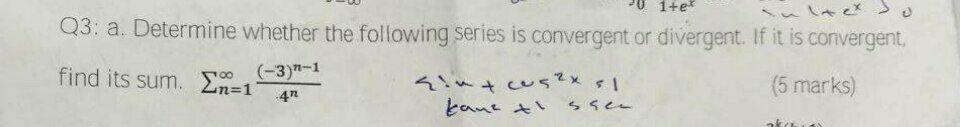 1+eˣ
Q3: a. Determine whether the following series is convergent or divergent. If it is convergent,
find its sum. ∑ₙ₌₁^∞ (-3)ⁿ⁻¹ / 4ⁿ (5 marks)